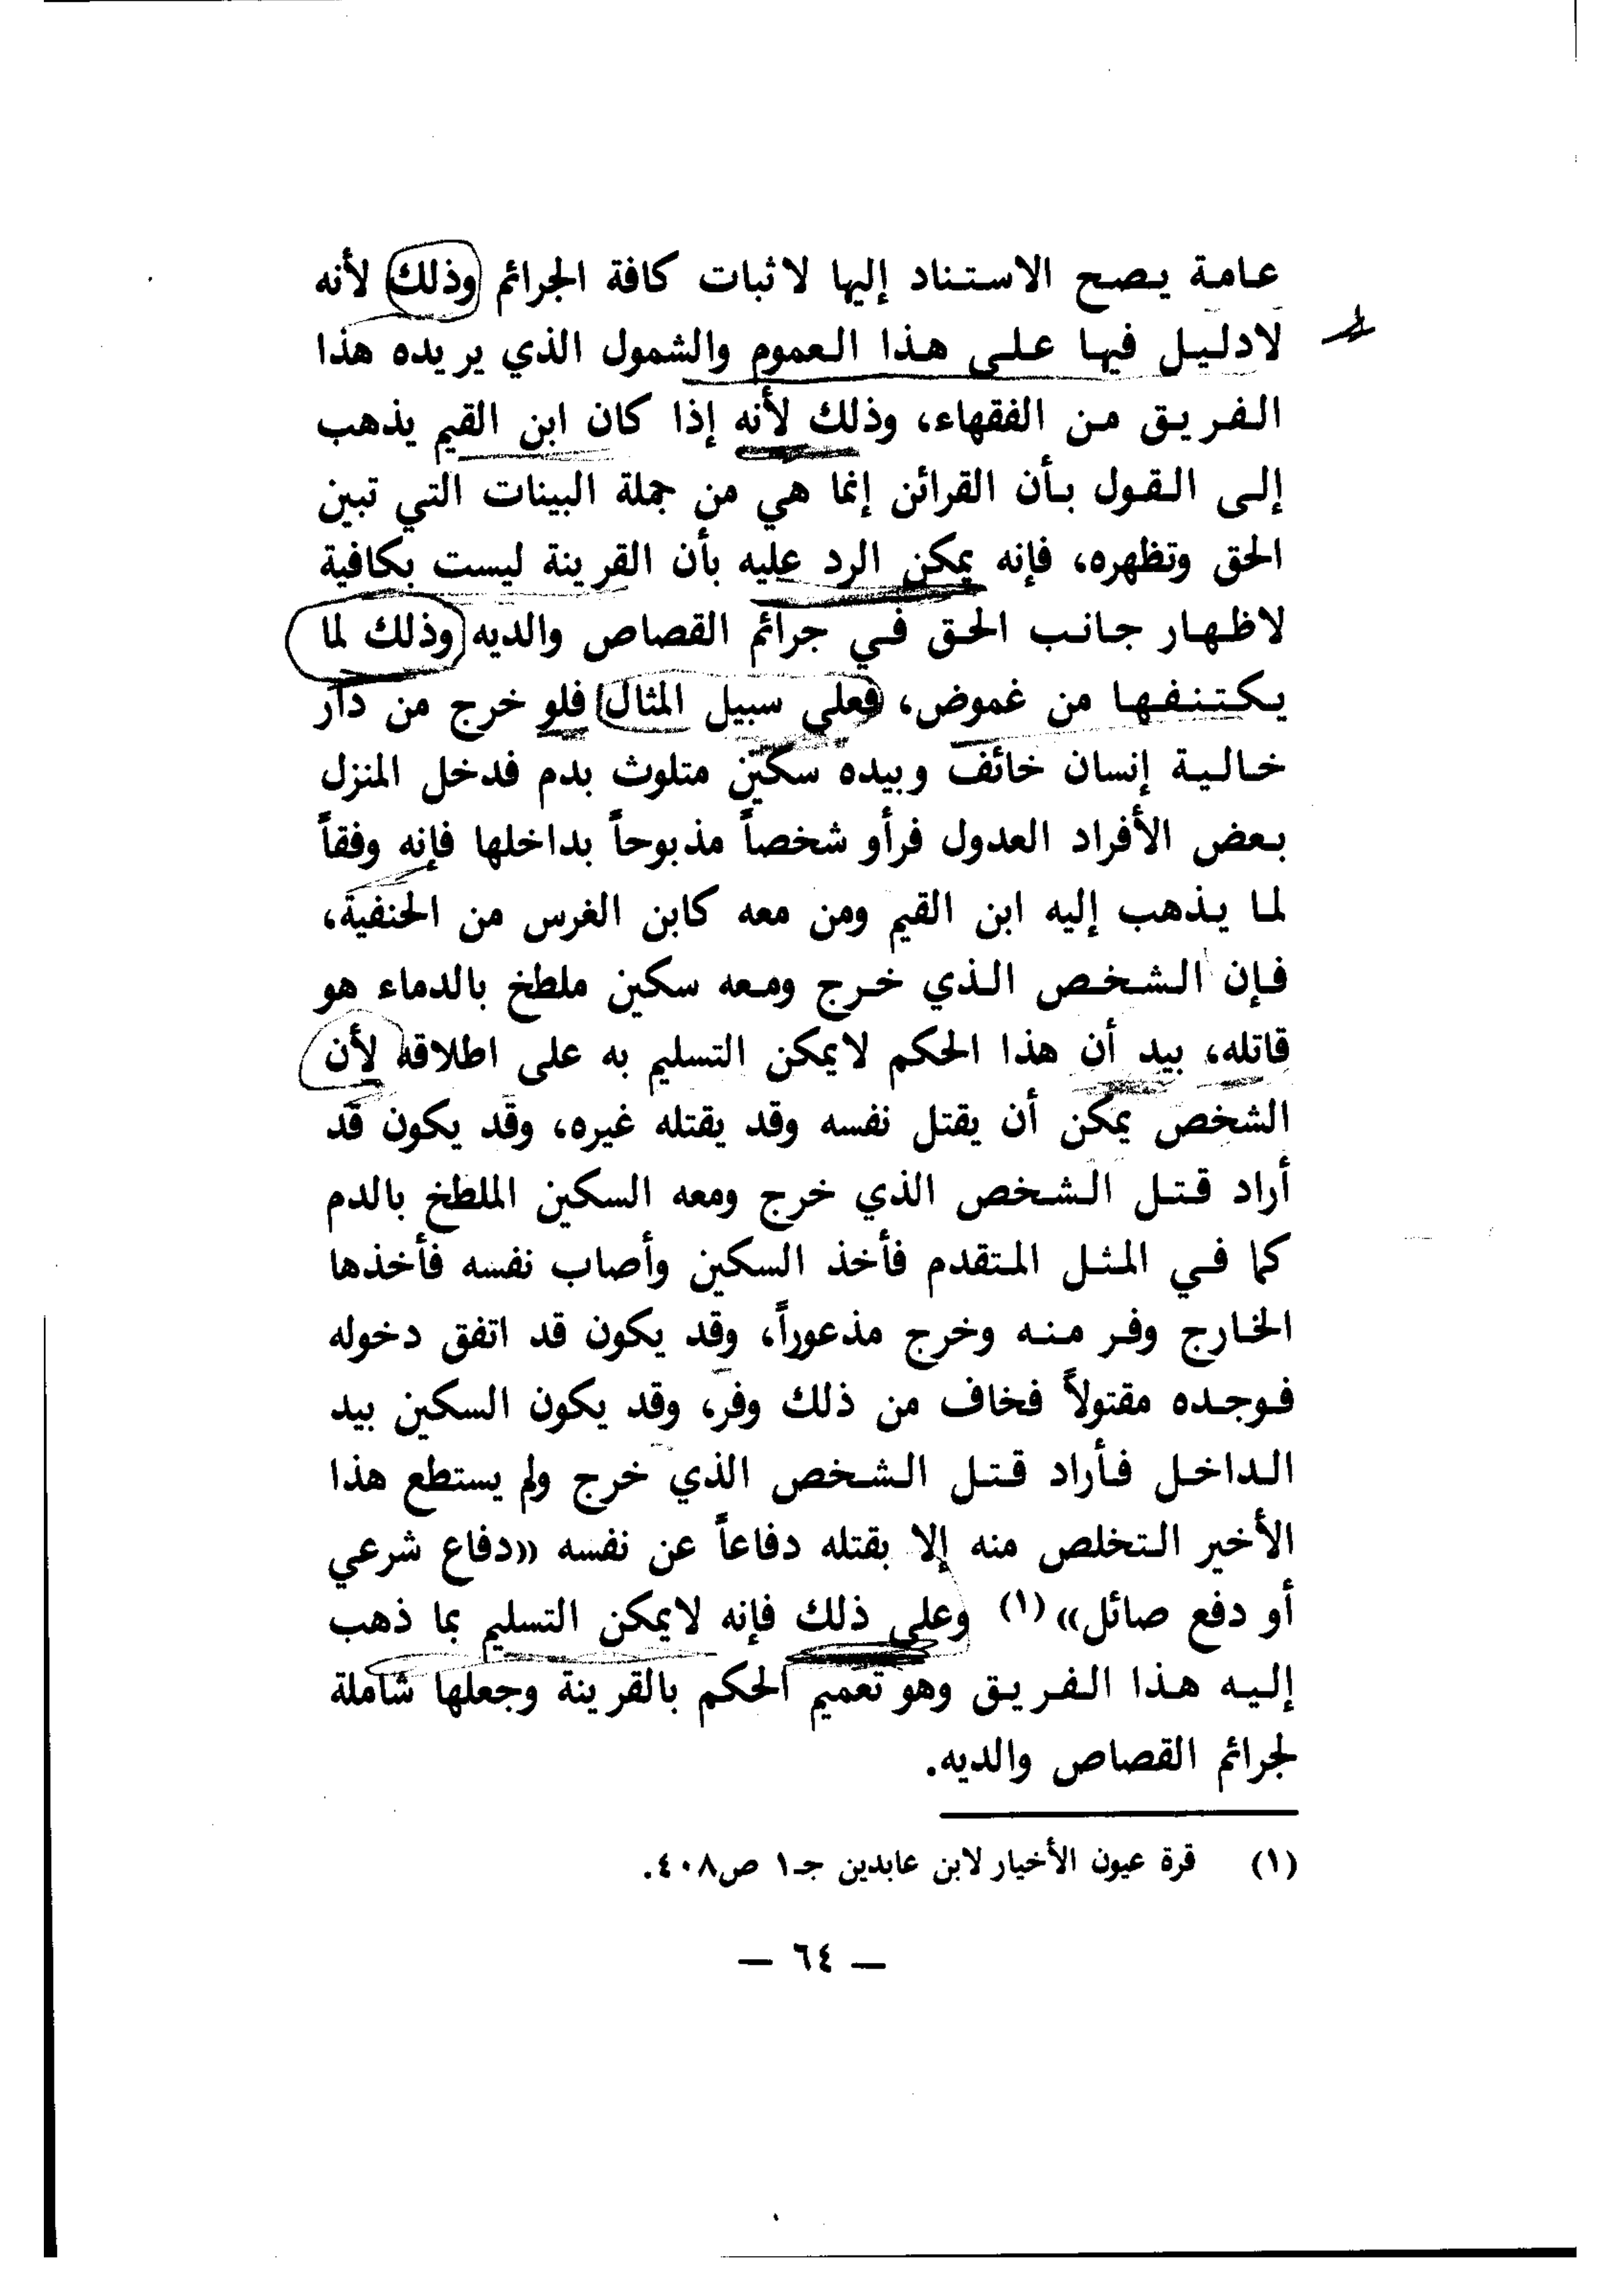 عامة يصح الاستناد إليها لاثبات كافة الجرائم وذلك لأنه
لادليل فيها على هذا العموم والشمول الذي يريده هذا
الفريق من الفقهاء، وذلك لأنه إذا كان ابن القيم يذهب
إلى القول بأن القرائن إنما هي من جملة البينات التي تبين
الحق وتظهره، فإنه يمكن الرد عليه بأن القرينة ليست بكافية
لاظهار جانب الحق في جرائم القصاص والديه وذلك لما
يكتنفها من غموض، فعلى سبيل المثال فلو خرج من دار
خالية إنسان خائف وبيده سكين متلوث بدم فدخل المنزل
بعض الأفراد العدول فرأو شخصاً مذبوحاً بداخلها فإنه وفقاً
لما يذهب إليه ابن القيم ومن معه كابن الغرس من الحنفية،
فإن الشخص الذي خرج ومعه سكين ملطخ بالدماء هو
قاتله، بيد أن هذا الحكم لايمكن التسليم به على اطلاقه لأن
الشخص يمكن أن يقتل نفسه وقد يقتله غيره، وقد يكون قد
أراد قتل الشخص الذي خرج ومعه السكين الملطخ بالدم
كما في المثل المتقدم فأخذ السكين وأصاب نفسه فأخذها
الخارج وفر منه وخرج مذعوراً، وقد يكون قد اتفق دخوله
فوجده مقتولاً فخاف من ذلك وفر، وقد يكون السكين بيد
الداخل فأراد قتل الشخص الذي خرج ولم يستطع هذا
الأخير التخلص منه إلا بقتله دفاعاً عن نفسه «دفاع شرعي
أو دفع صائل» (١) وعلى ذلك فإنه لايمكن التسليم بما ذهب
إليه هذا الفريق وهو تعميم الحكم بالقرينة وجعلها شاملة
لجرائم القصاص والديه.
(١) قرة عيون الأخيار لابن عابدين جـ١ ص٤٠٨.
— ٦٤ —